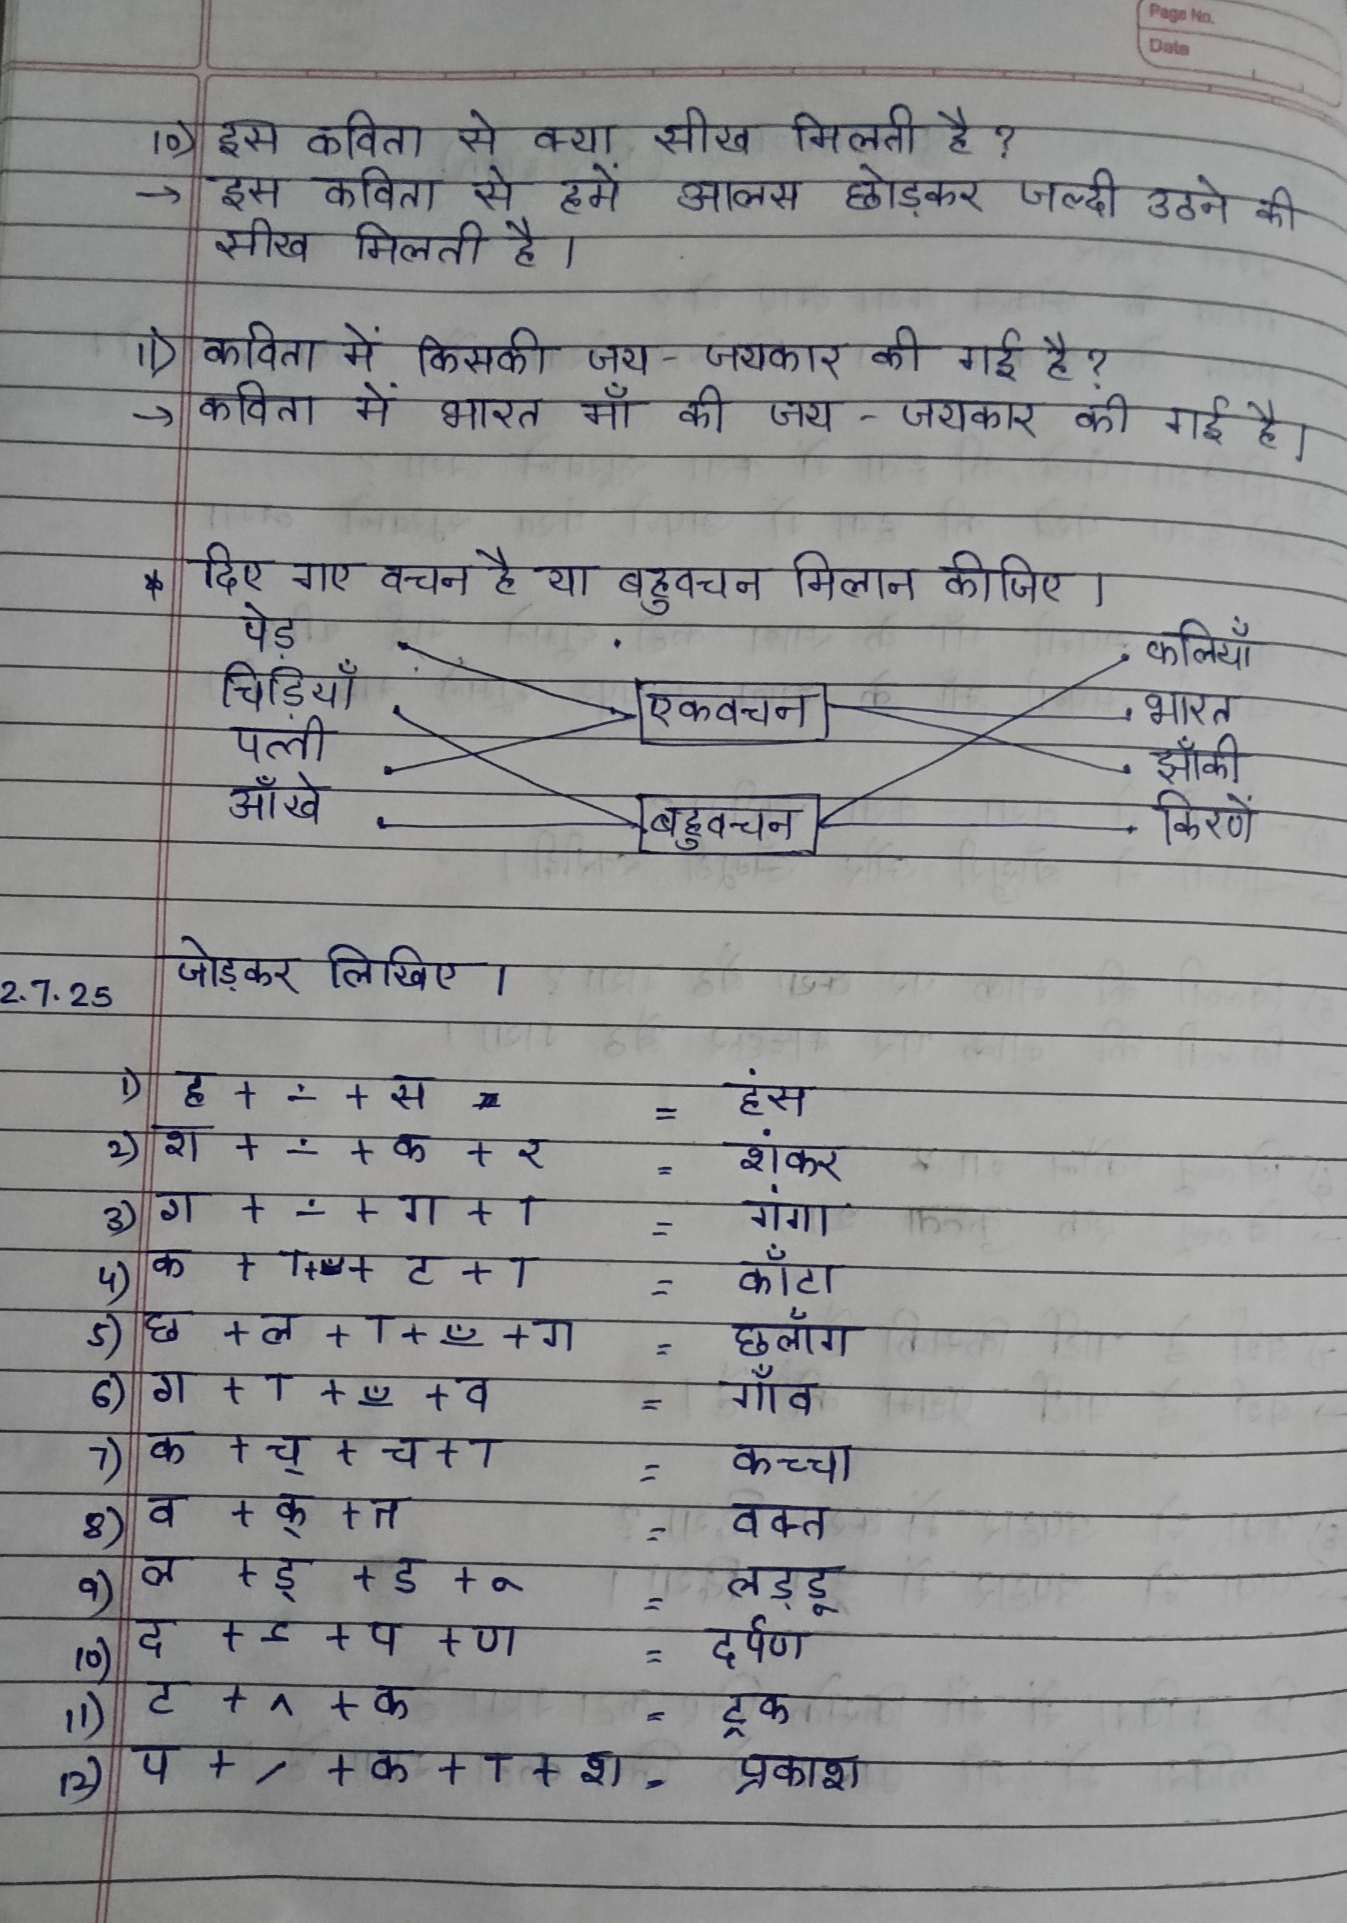 Page No.
Date
10) इस कविता से क्या सीख मिलती है ?
→ इस कविता से हमें आलस छोड़कर जल्दी उठने की
सीख मिलती है ।
11) कविता में किसकी जय - जयकार की गई है ?
→ कविता में भारत माँ की जय - जयकार की गई है ।
* दिए गए वचन है या बहुवचन मिलान कीजिए ।
पेड़ कलियाँ
चिड़ियाँ एकवचन भारत
पत्ती झाँकी
आँखे बहुवचन किरणें
2.7.25 जोड़कर लिखिए ।
1) ह + ं + स = हंस
2) श + ं + क + र = शंकर
3) ग + ं + ग + ा = गंगा
4) क + ा + ँ + ट + ा = काँटा
5) छ + ल + ा + ँ + ग = छलाँग
6) ग + ा + ँ + व = गाँव
7) क + च् + च + ा = कच्चा
8) व + क् + त = वक्त
9) ल + ड् + ड + ू = लड्डू
10) द + र् + प + ण = दर्पण
11) ट + ्र + क = ट्रक
12) प + ्र + क + ा + श = प्रकाश